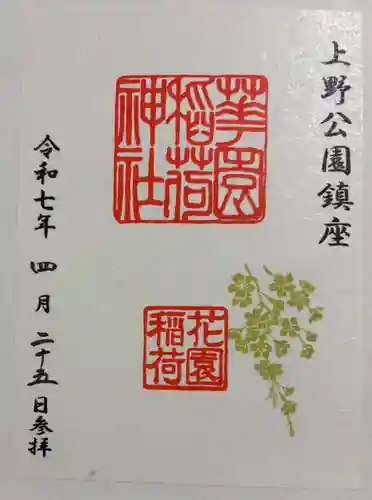 上野公園鎮座
華園
稲荷
神社
花園
稲荷
令和七年 四月 二十五日参拝